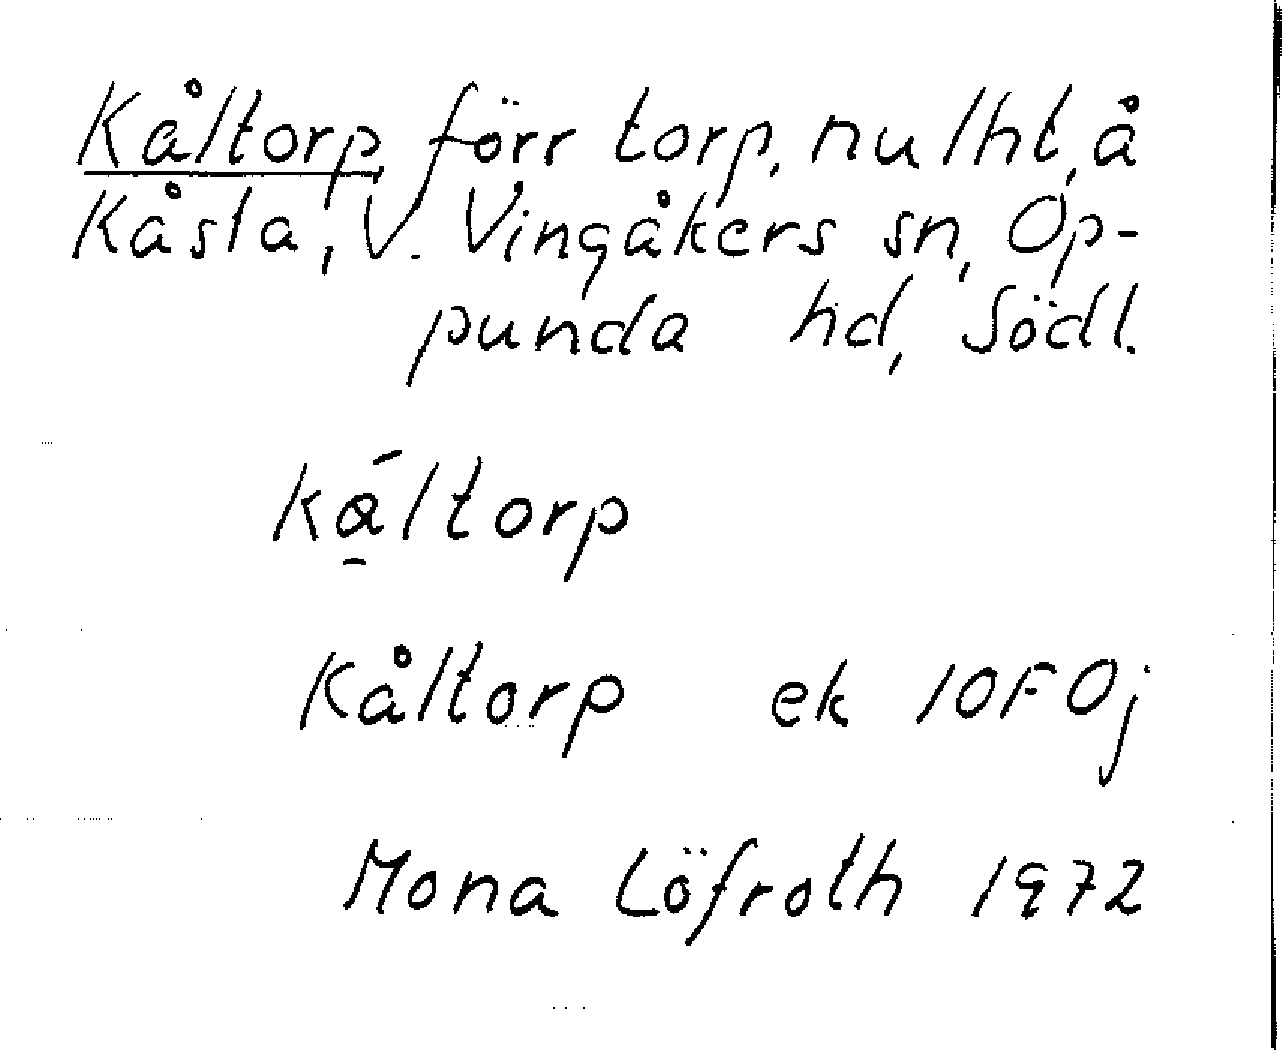 Kåltorp, förr torp, nu lht, å
Kåsta, V. Vingåkers sn, Op-
punda hd, Södl.
ká̱ltorp
Kåltorp ek 10F0j
Mona Löfroth 1972